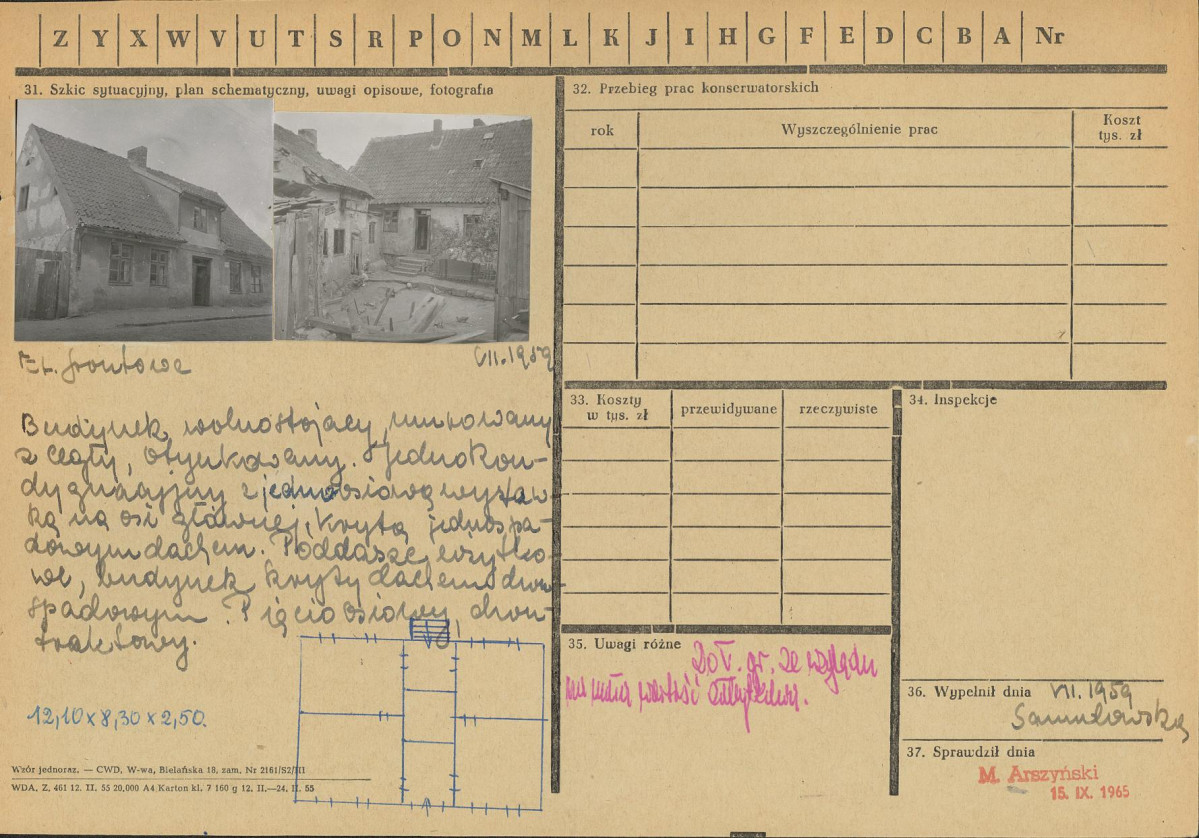 Z Y X W V U T S R P O N M L K J I H G F E D C B A Nr
31. Szkic sytuacyjny, plan schematyczny, uwagi opisowe, fotografia
El. frontowa VII.1959
Budynek wolnostojący, murowany
z cegły, otynkowany. Jednokon-
dygnacyjny z jednoosiową wystaw-
ką na osi głównej, krytą jednospa-
dowym dachem. Poddasze użytko-
we, budynek kryty dachem dwu-
spadowym. Pięcioosiowy, dwu-
traktowy.
12,10 x 8,30 x 2,50.
Wzór jednoraz. — CWD, W-wa, Bielańska 18, zam. Nr 2161/S2/III
WDA, Z. 461 12. II. 55 20,000 A4 Karton kl. 7 160 g 12. II.—24. II. 55
32. Przebieg prac konserwatorskich
rok
Wyszczególnienie prac
Koszt
tys. zł
33. Koszty
w tys. zł
przewidywane
rzeczywiste
34. Inspekcje
35. Uwagi różne
ze względu
wartość
36. Wypełnił dnia VII. 1959
37. Sprawdził dnia
M. Arszyński
15. IX. 1965